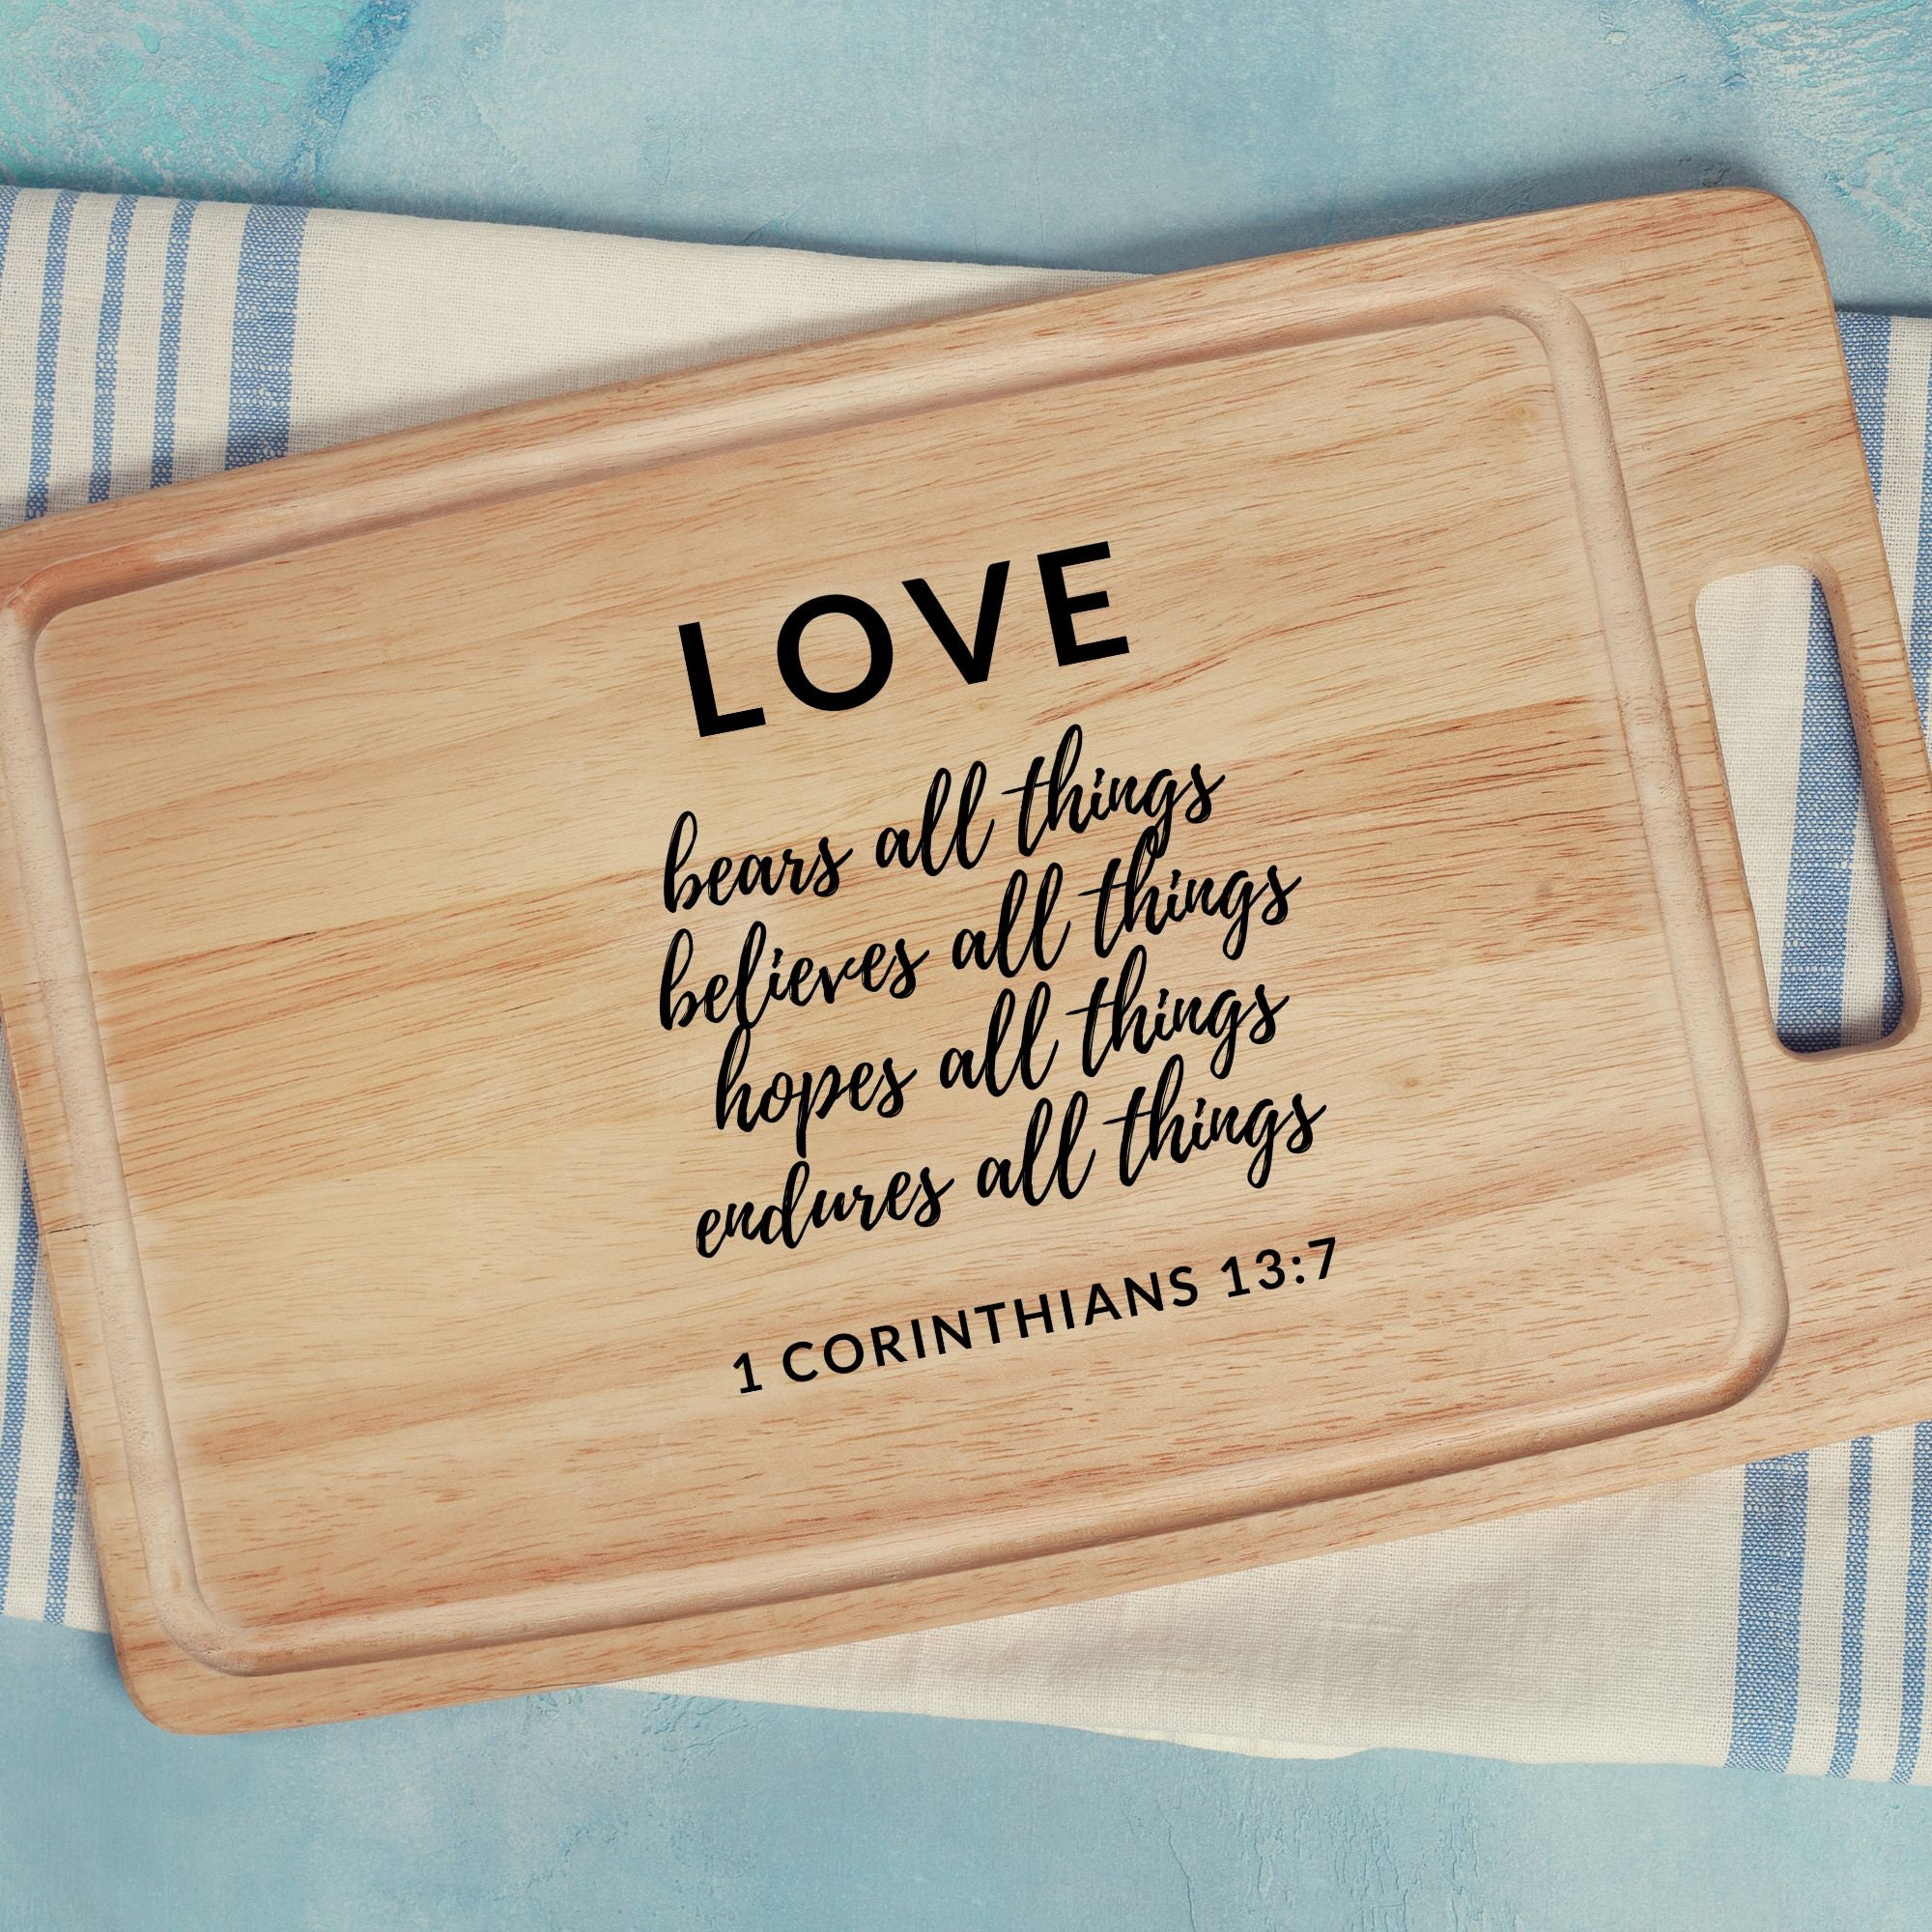 LOVE
bears all things
believes all things
hopes all things
endures all things
1 CORINTHIANS 13:7